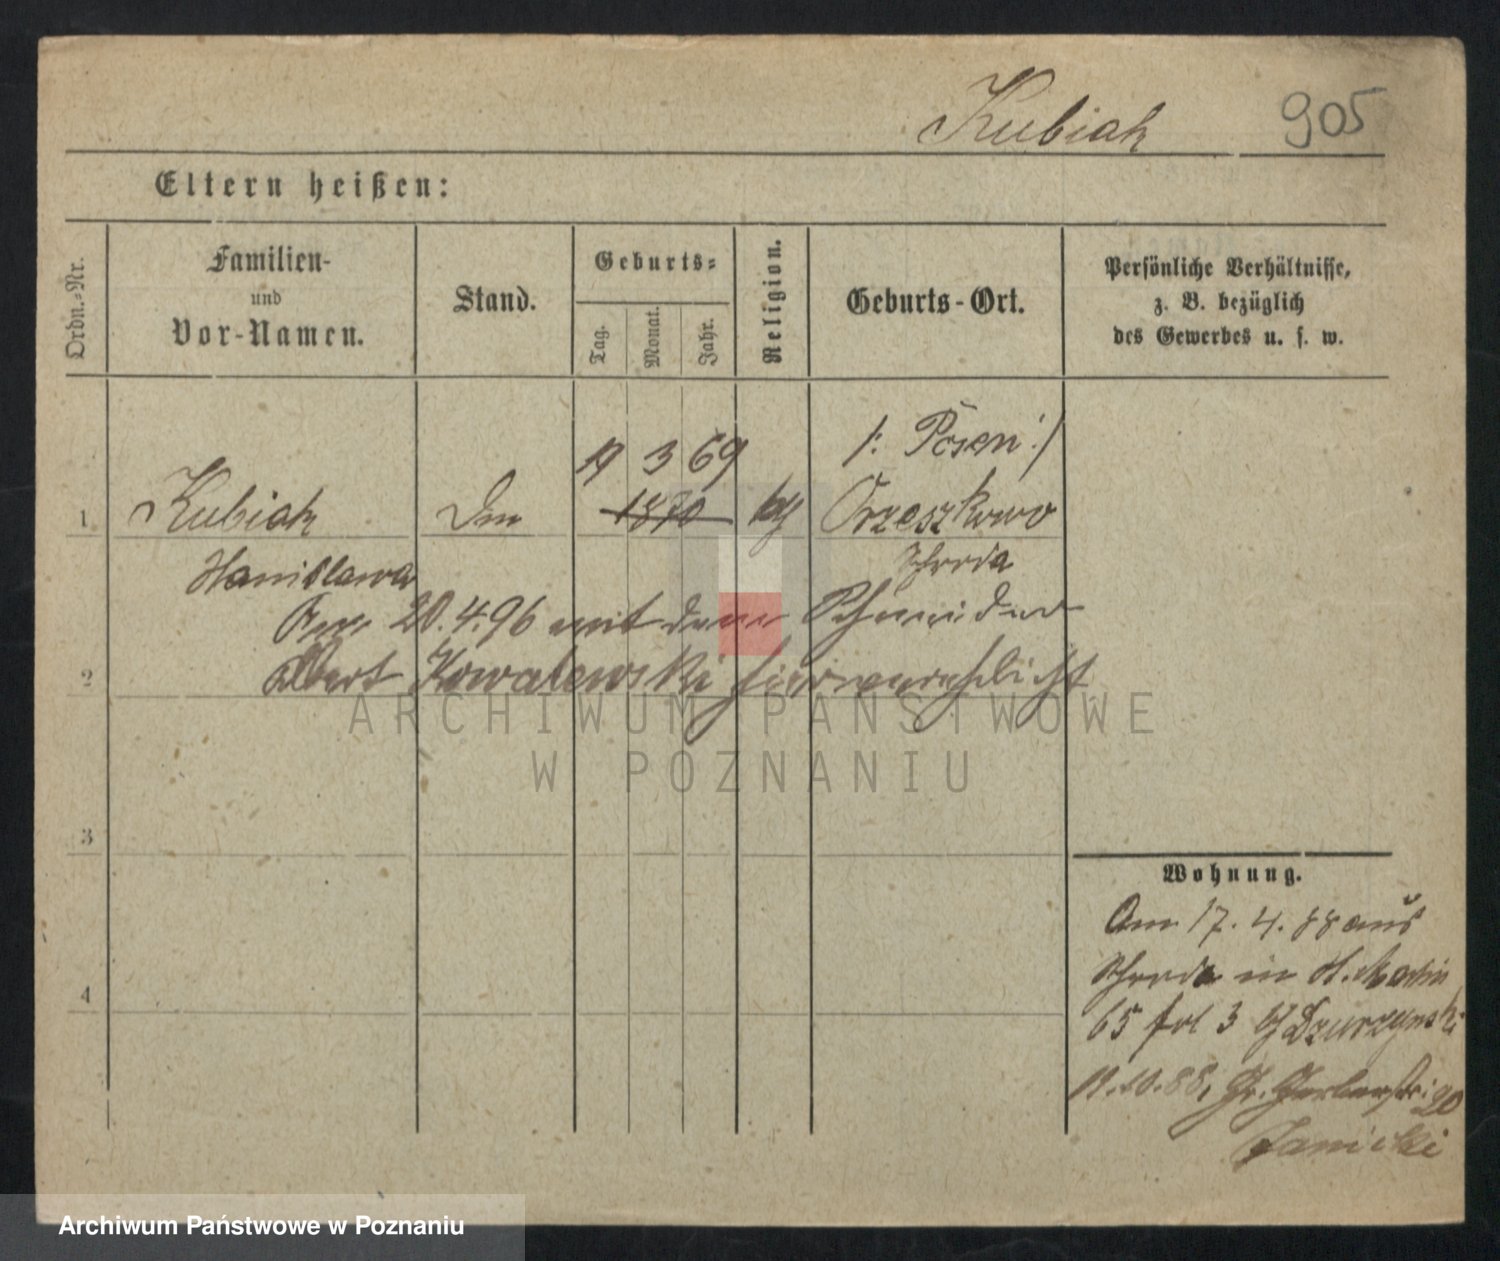 Kubiak 905
Eltern heißen:
Ordn.-Nr.
Familien-
und
Vor-Namen.
Stand.
Geburts-
Tag.
Monat.
Jahr.
Religion.
Geburts-Ort.
Persönliche Verhältnisse,
z. B. bezüglich
des Gewerbes u. s. w.
/: Posen :/
19 3 69
1 Kubiak 1870 Orzeszkowo
Stanislawa Schroda
20.4.96 mit dem Schneider
2 Albert Kowalewski hier verehelicht
ARCHIWUM PAŃSTWOWE
W POZNANIU
3
4
Wohnung.
Am 17. 4. 88 aus
Schroda in St. Martin
65 3 Dzurzynski
19.10.88, Gr. Gerberstr. 20
Janicki
Archiwum Państwowe w Poznaniu